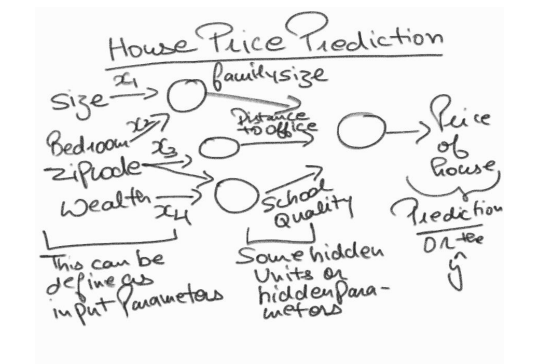 House Price Prediction
Size x1 family size
Bedroom x2 Distance to office
Zipcode x3
Wealth x4 School Quality
Price
of
house
Prediction
or the
ŷ
This can be
define as
input Parameters
Some hidden
Units or
hidden Para-
meters